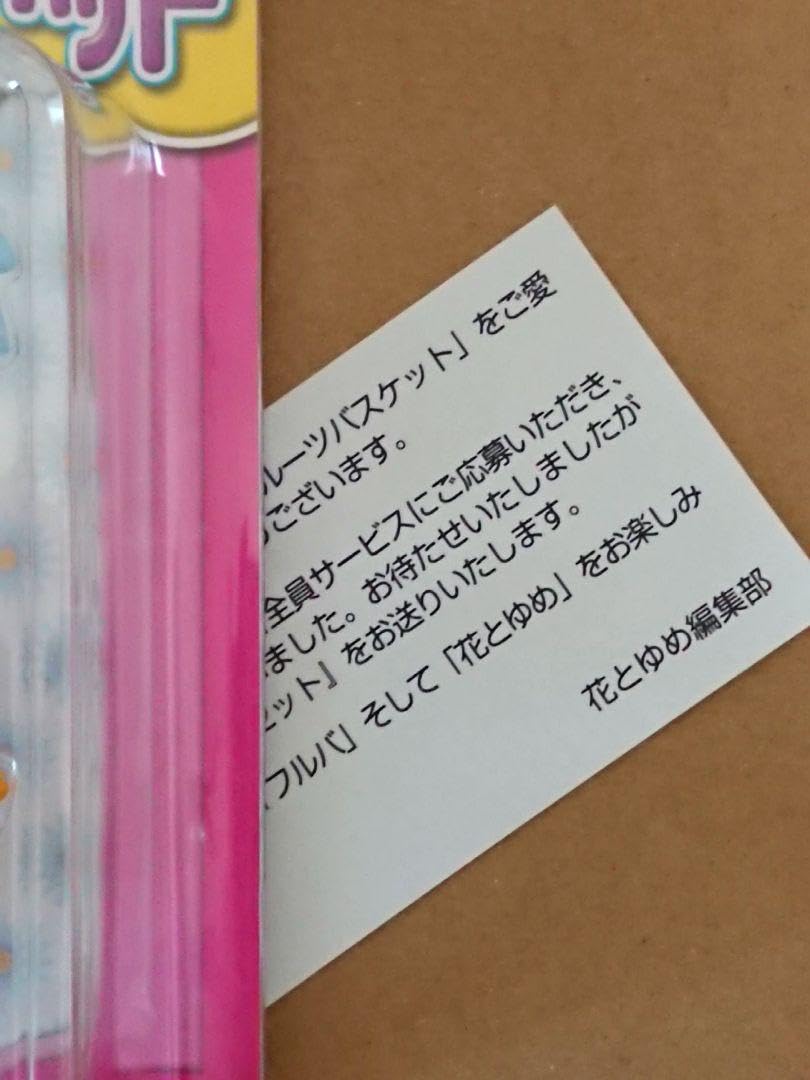 ット
ルーツバスケット」をご愛
ございます。
全員サービスにご応募いただき、
ました。お待たせいたしましたが
ット』をお送りいたします。
フルバ」そして「花とゆめ」をお楽しみ
花とゆめ編集部